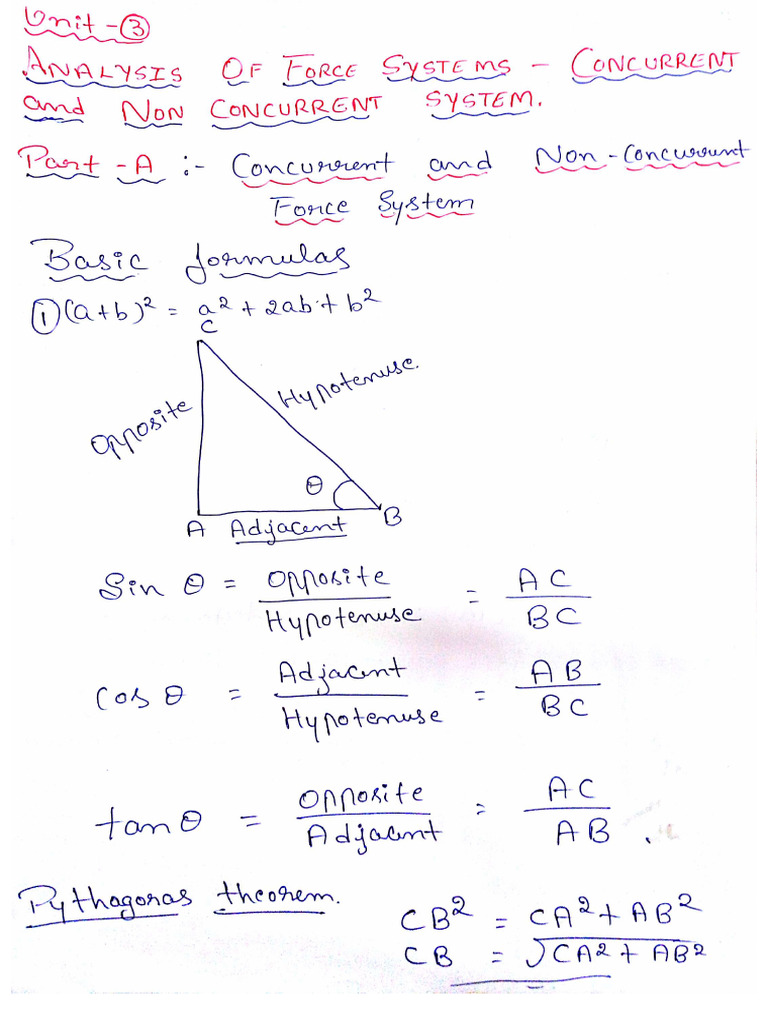 Unit - ③
ANALYSIS OF FORCE SYSTEMS - CONCURRENT
and NON CONCURRENT SYSTEM.
Part - A :- Concurrent and Non-Concurrent
Force System
Basic formulas
① (a+b)² = a² + 2ab + b²
C
Opposite
Hypotenuse.
θ
A Adjacent B
Sin θ = Opposite / Hypotenuse = AC / BC
Cos θ = Adjacent / Hypotenuse = AB / BC
tan θ = Opposite / Adjacent = AC / AB .
Pythagoras theorem.
CB² = CA² + AB²
CB = √CA² + AB²